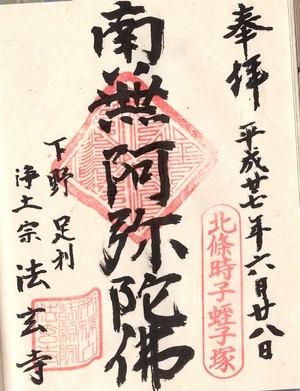 奉拝
平成廿七年六月廿八日
北條時子蛭子塚
南無阿弥陀佛
下野 足利
浄土宗 法玄寺